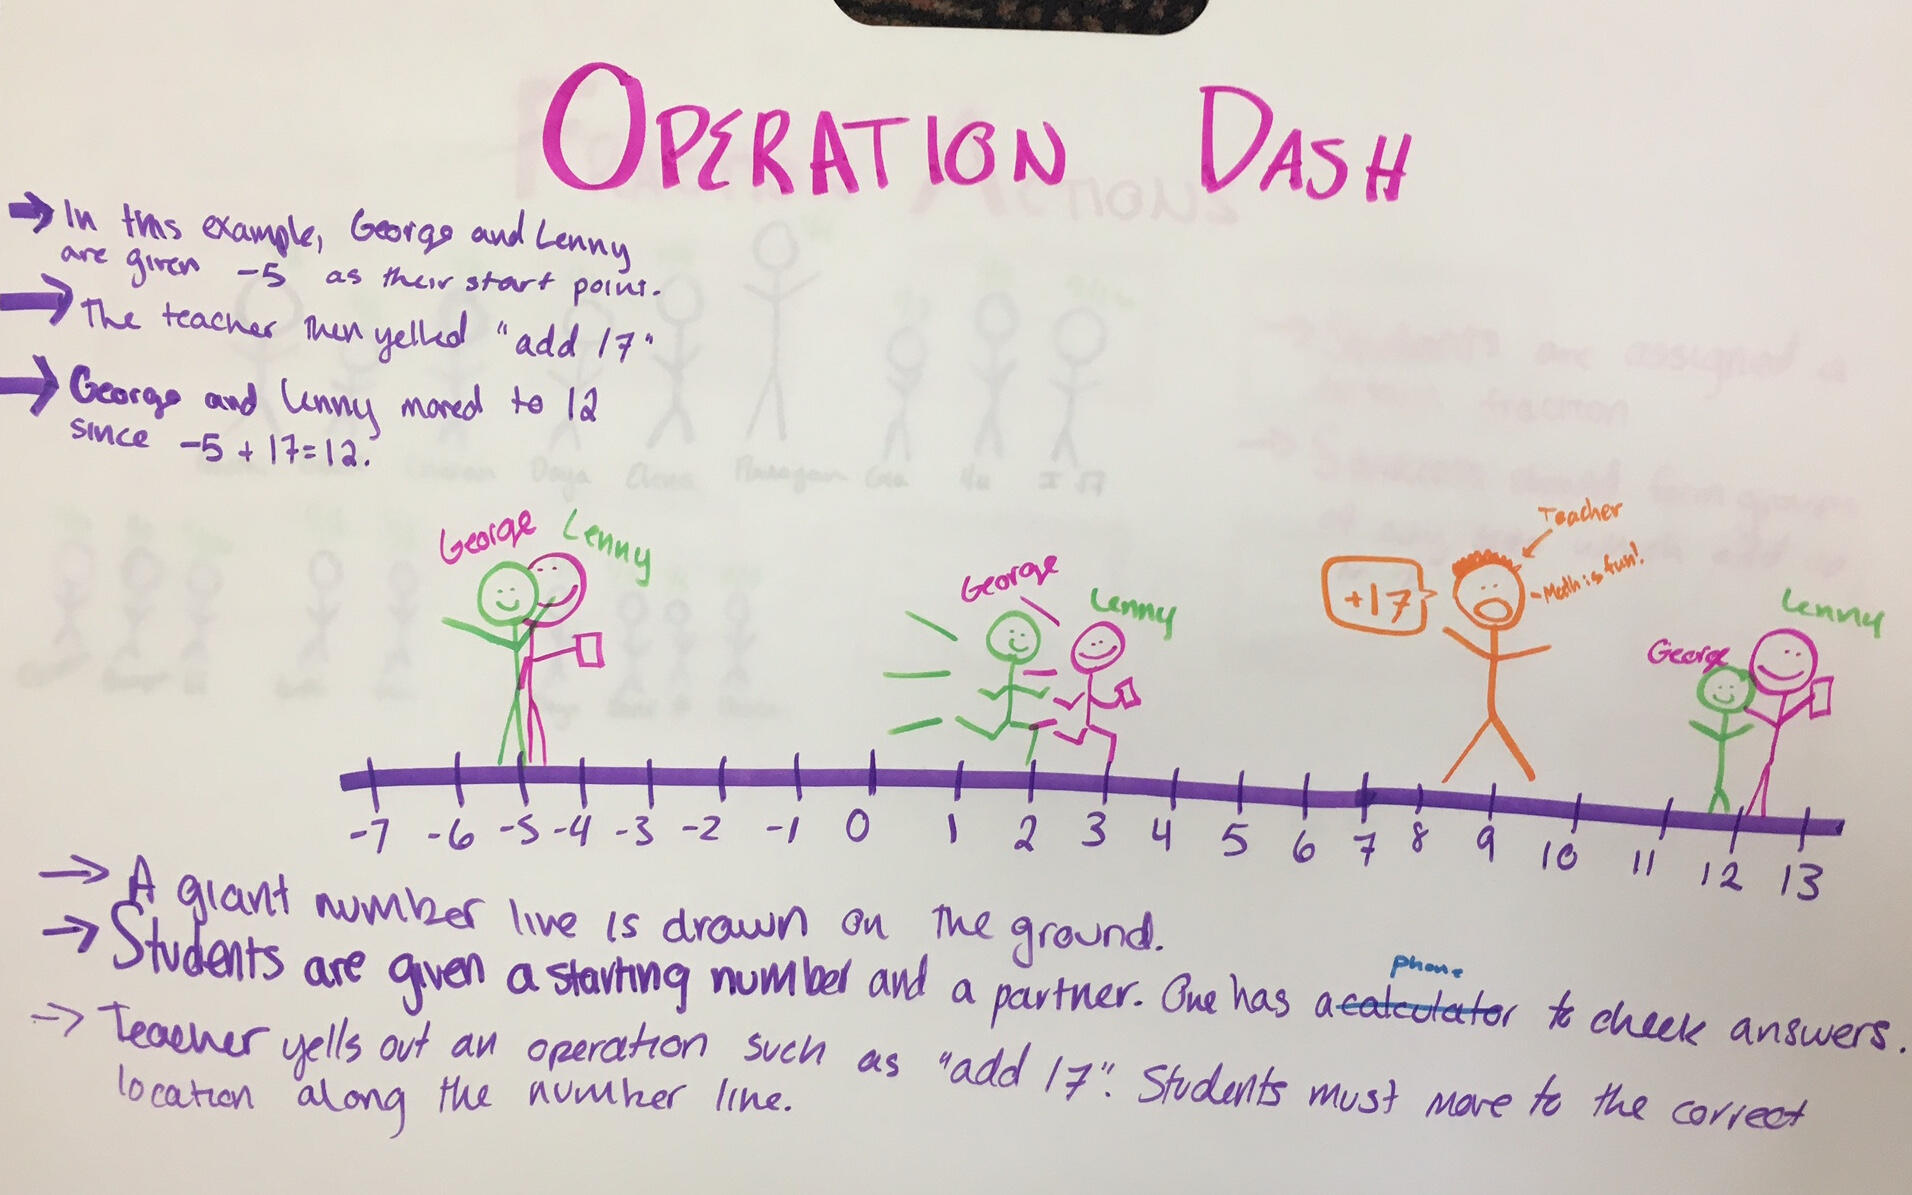 OPERATION DASH
→ In this example, George and Lenny
are given -5 as their start point.
→ The teacher then yelled "add 17"
→ George and Lenny moved to 12
since -5 + 17 = 12.
George Lenny
George Lenny
+17
Teacher
- Math is fun!
George Lenny
-7 -6 -5 -4 -3 -2 -1 0 1 2 3 4 5 6 7 8 9 10 11 12 13
→ A giant number line is drawn on the ground.
→ Students are given a starting number and a partner. One has a calculator phone to check answers.
→ Teacher yells out an operation such as "add 17". Students must move to the correct
location along the number line.